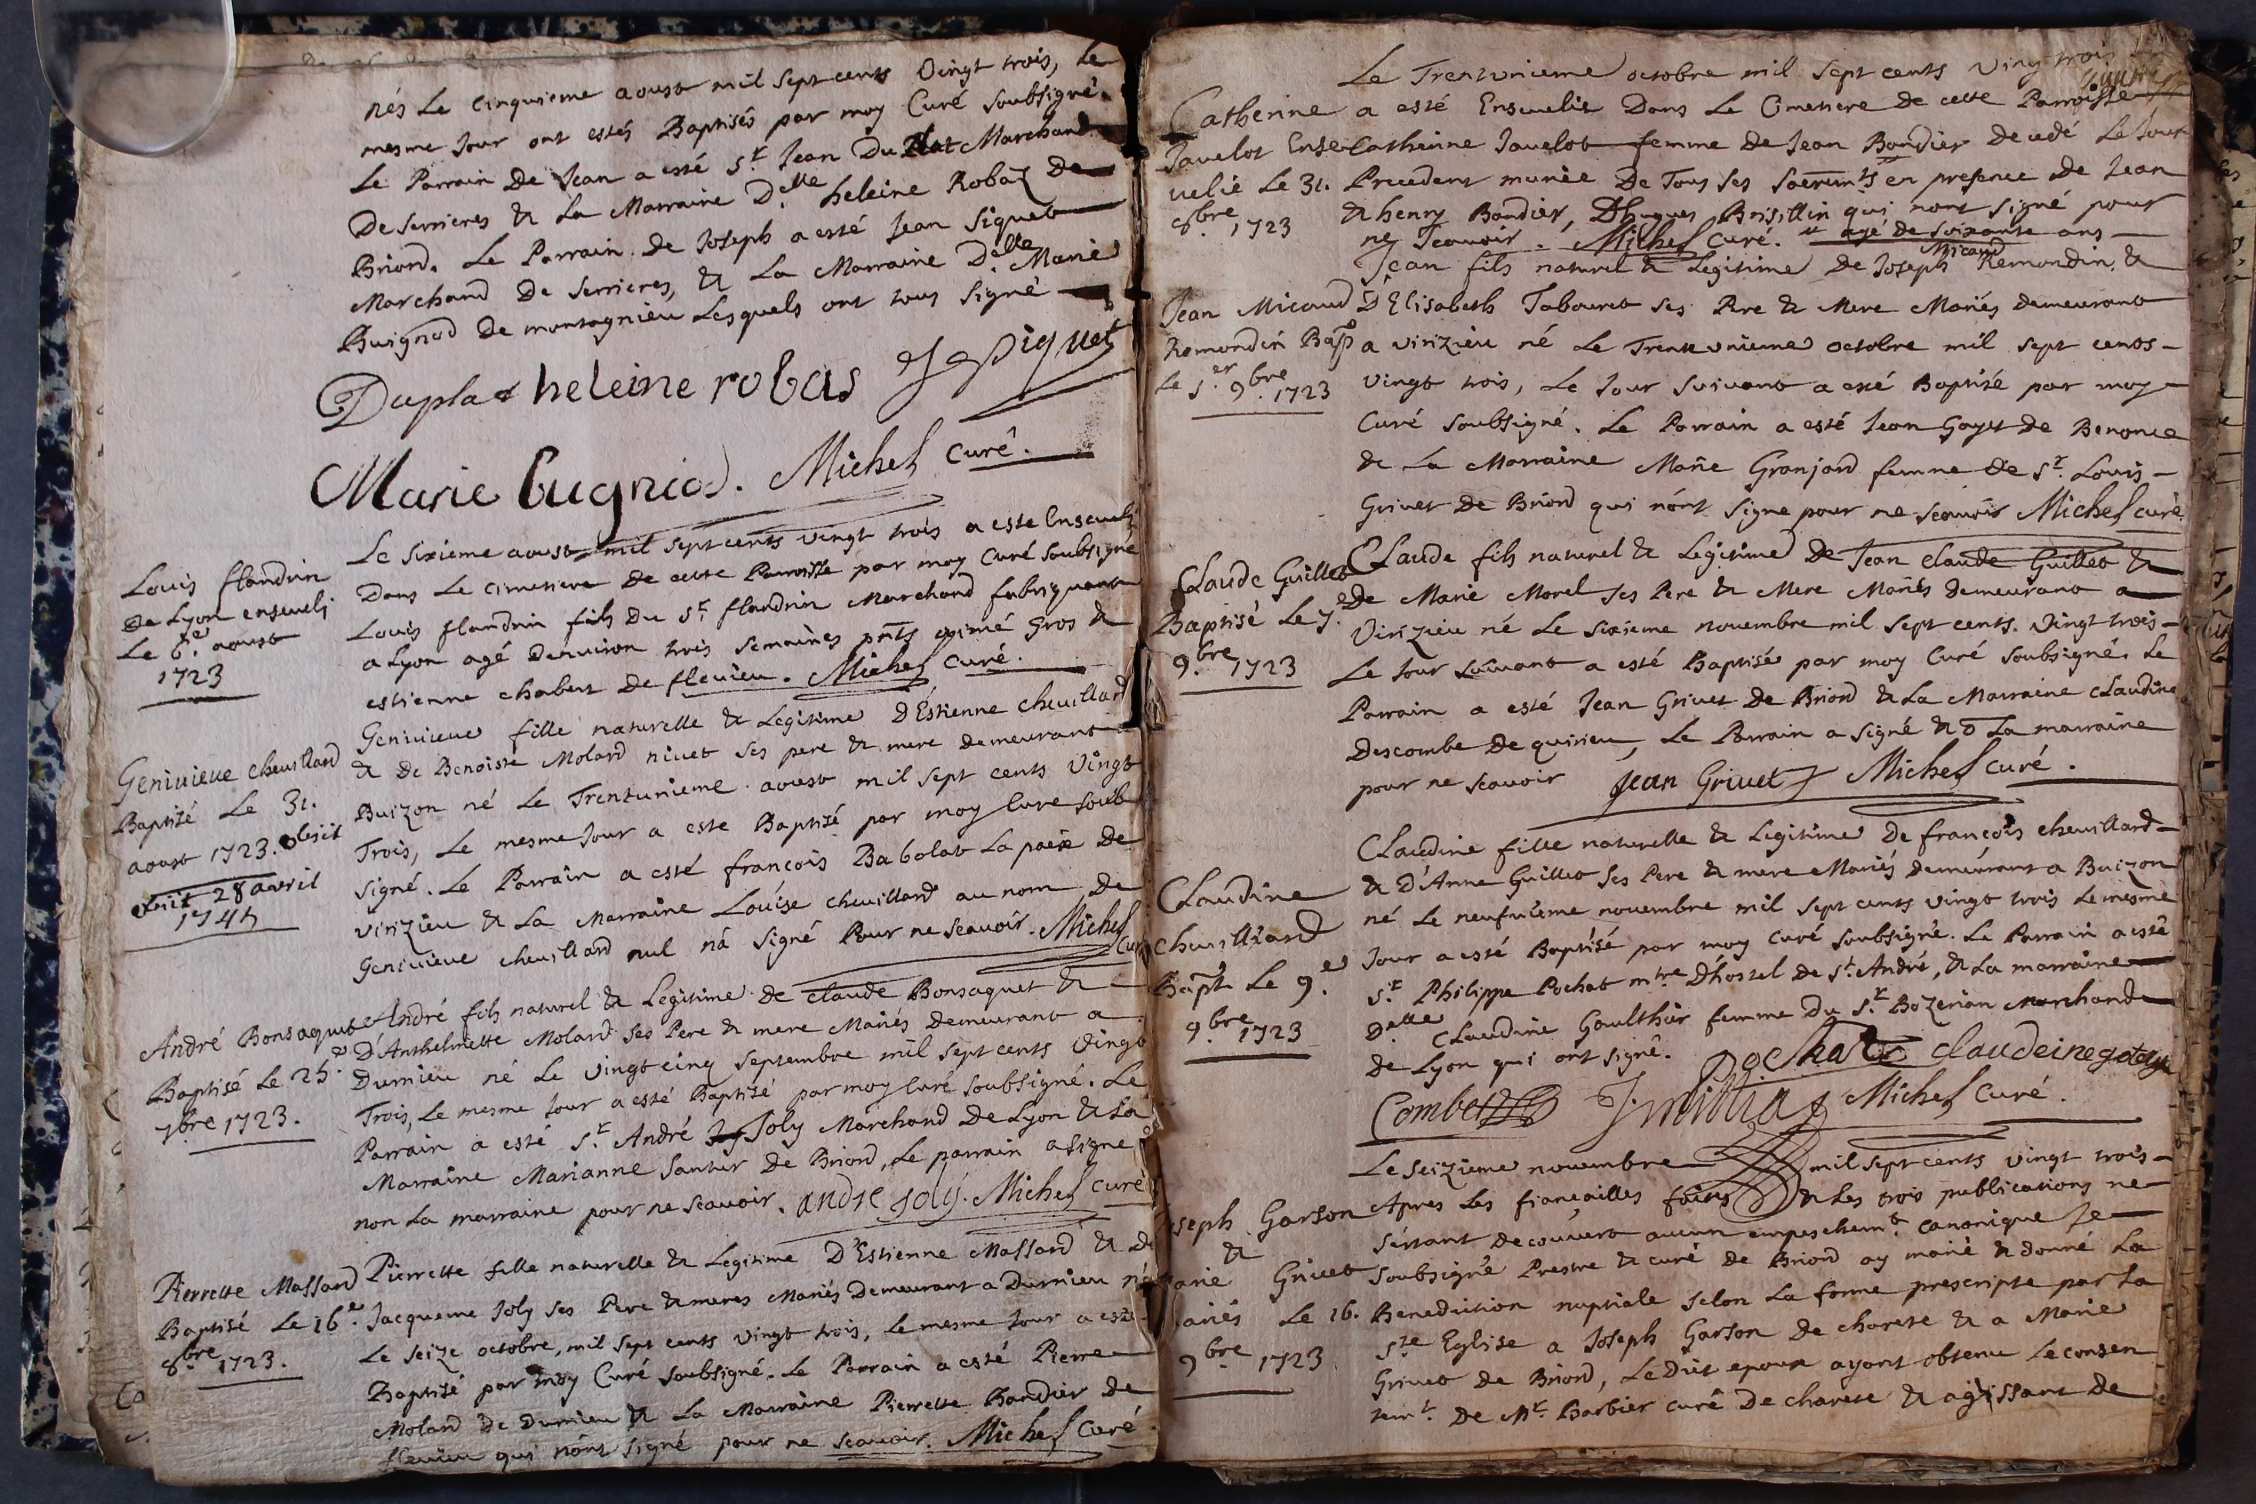 nés Le Cinquieme aoust mil sept cents Vingt trois, Le
mesme Jour ont estés Baptisés par moy Curé soubsigné.
Le Parrain de Jean a esté Sr. Jean Duplat Marchand
De serrieres & La Marraine Delle. heleine Robaz De
Briord. Le Parrain de Joseph a esté Jean Siquet
Marchand De Serrieres, & La Marraine Delle. Marie
Buignod De montagnieu Lesquels ont tous signé
Duplat heleine robas
Marie Bugniod. Michel Curé.
Louis flandrin
De Lyon enseveli
Le 6e. aoust
1723
Le sixieme aoust mil sept cents vingt trois a esté Enseveli
Dans Le cimetiere de cette Parroisse par moy Curé soubsigné
Louis flandrin fils Du Sr. flandrin Marchand fabriquant
a Lyon agé Denviron trois semaines pnts aimé Gros &
estienne chabert de flevieu. Michel Curé.
Genivieve chevillard
Baptisé Le 31.
aoust 1723. obiit
obiit 28 avril
1745
Genivieve fille naturelle & Legitime D'Estienne chevillard
& de Benoiste Molard nivet ses pere & mere demeurant a
Buizon né Le Trentunieme aoust mil sept cents Vingt
Trois, Le mesme Jour a esté Baptisé par moy Curé soub
signé. Le Parrain a esté francois Babolat La paix De
virizieu & La Marraine Louise chevillard au nom De
Genivieve chevillard nul n'a signé Pour ne sçavoir. Michel Curé
André Bonsaquet
Baptisé Le 25e.
7bre 1723.
André fils naturel & Legitime de claude Bonsaquet &
D'Anthelmette Molard ses Pere & mere Mariés Demeurant a
Durnieu né Le vingt cinq septembre mil sept cents Vingt
Trois, Le mesme Jour a esté Baptisé par moy Curé soubsigné. Le
Parrain a esté Sr. André Joly Marchand De Lyon & La
Marraine Marianne Santier De Briord, Le parrain a signé
non La marraine pour ne sçavoir. andre joly. Michel Curé
Pierrette Massard
Baptisé Le 16e.
8bre. 1723.
Pierrette fille naturelle & Legitime D'Estienne Massard & de
Jacqueme Joly ses Pere & meres Mariés Demeurant a Durnieu né
Le seize octobre, mil sept cents Vingt trois, Le mesme Jour a esté
Baptisé par moy Curé soubsigné. Le Parrain a esté Pierre
Molard De Durnieu & La Marraine Pierrette Bandier De
flevieu qui n'ont signé pour ne sçavoir. Michel Curé
Catherine
Javelot Ense
velie Le 31.
8bre. 1723
Le Trentunieme octobre mil sept cents Vingt trois
a esté Ensevelie Dans Le Cimetiere de cette Parroisse
Catherinne Javelot femme de Jean Bandier Decedé Le Jour
Precedent munie De Tous ses sacremts en presence de Jean
& henry Bandier, D'hugues Brisillin qui n'ont signé pour
ne sçavoir. Michel Curé. agé de soixante ans
Jean Micaud
Remondin Bap
Le 1er. 9bre. 1723
Jean fils naturel & Legitime de Joseph Micaud Remondin, &
D'Elisabeth Tabouret ses Pere & Mere Mariés demeurant
a virizieu né Le Trentunieme octobre mil sept cents
Vingt trois, Le Jour suivant a esté Baptisé par moy
Curé soubsigné. Le Parrain a esté Jean Goyet de Benonce
& La Marraine Marie Granjard femme de Sr. Louis
Grivet De Briord qui n'ont signe pour ne scavoir Michel Curé
Claude Guillet
Baptisé Le 7e.
9bre. 1723
Claude fils naturel & Legitime De Jean claude Guillet &
De Marie Morel ses Pere & Mere Mariés demeurant a
Virizieu né Le sixieme novembre mil sept cents. Vingt trois
Le Jour suivant a esté Baptisé par moy Curé soubsigné. Le
Parrain a esté Jean Grivet De Briord & La Marraine Claudine
Descombe De quirieu, Le Parrain a signé & La marraine
pour ne scavoir Jean Grivet Michel Curé.
Claudine
chevillard
Bapt. Le 9e.
9bre. 1723
Claudine fille naturelle & Legitime De francois chevillard
& D'Anne Guillet ses Pere & mere Mariés demeurant a Buizon
né Le neufvieme novembre mil sept cents vingt trois Le mesme
Jour a esté Baptisé par moy Curé soubsigné. Le Parrain a esté
Sr. Philippe Pochat mtre. D'hostel de St. André, & La marraine
Delle. Claudine Gaulthier femme Du Sr. Bozerian Marchand
de Lyon qui ont signé. Pochat
Combet Michel Curé.
Joseph Garson
&
Marie Grivet
Mariés Le 16.
9bre. 1723.
Le seizieme novembre mil sept cents vingt trois
Apres Les fiançailles faites & Les trois publications ne
s'estant decouvert aucun empeschemt canonique Je
Soubsigné Prestre & curé De Briord ay marié & donné La
Benediction nuptiale selon La forme prescripte par La
Ste Eglise a Joseph Garson De charete & a Marie
Grivet De Briord, Ledit epoux ayant obtenu Le consen
temt. De Mr. Barbier curé De charete & agissant de